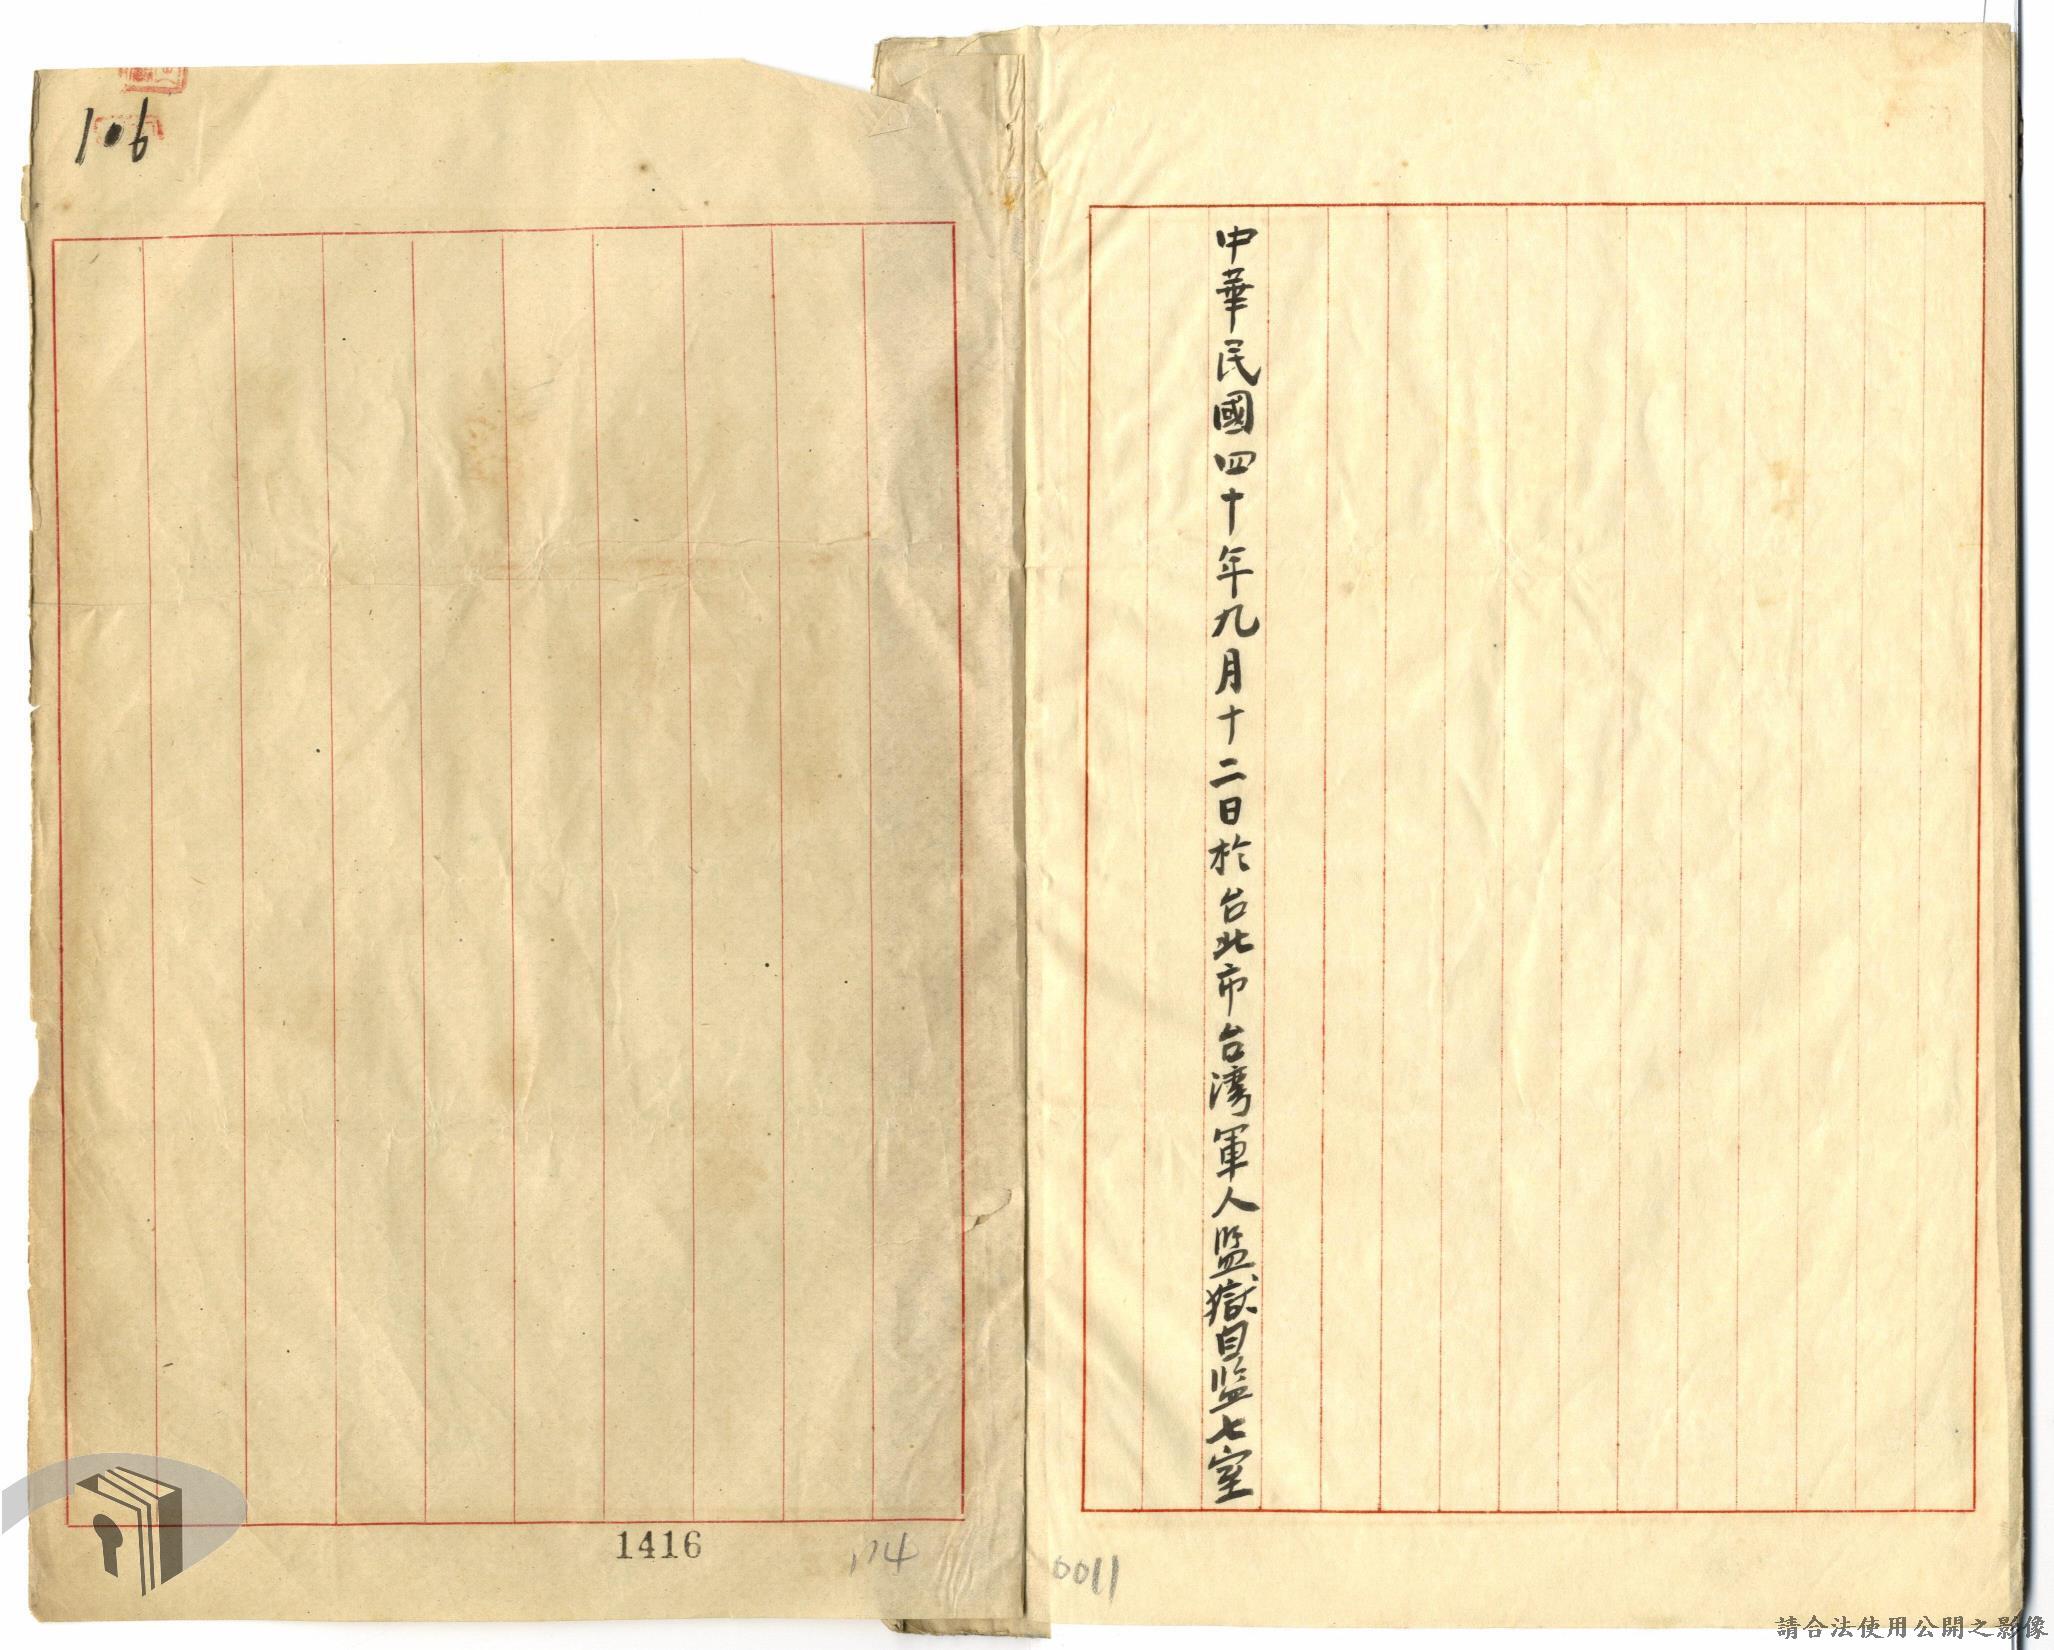 中華民國四十年九月十二日於台北市台湾軍人监獄自监七室
106
1416
174
0011
請合法使用公開之影像